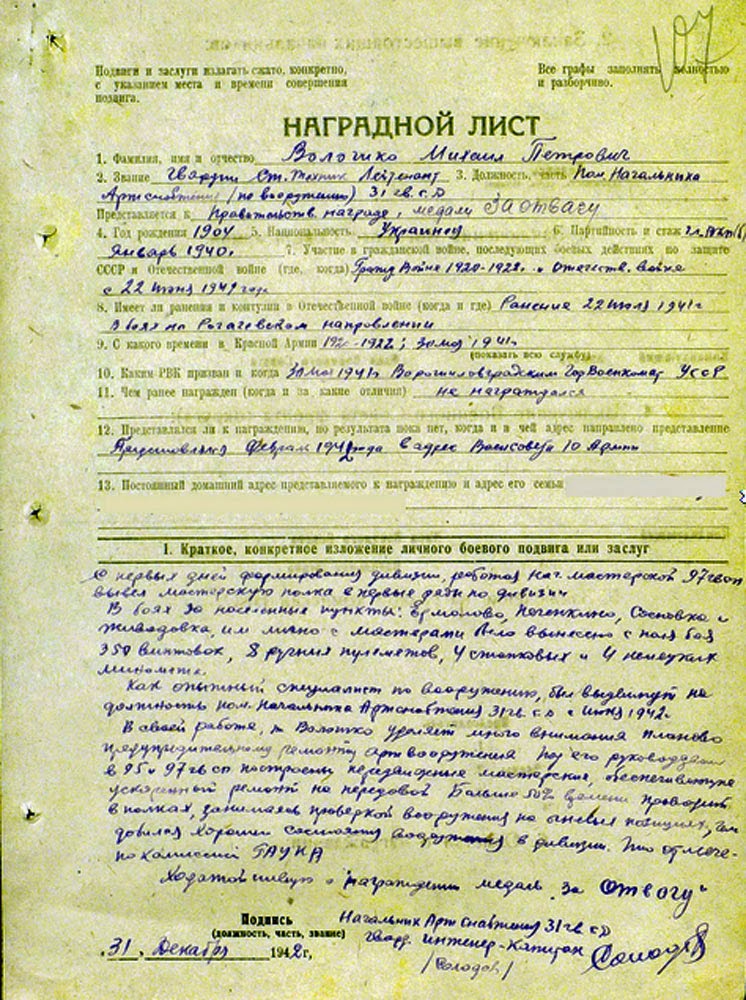 107
Подвиги и заслуги излагать сжато, конкретно,
с указанием места и времени совершения
подвига.
Все графы заполнять полностью
и разборчиво.
НАГРАДНОЙ ЛИСТ
1. Фамилия, имя и отчество Михаил Петрович
2. Звание Гвардии Ст. Техник Лейтенант 3. Должность, часть Пом. Начальника
Артснабжения (по вооружению) 31 гв. с.д
Представляется к Правительств. награде, медали За отвагу
4. Год рождения 1904 5. Национальность Украинец 6. Партийность и стаж
Январь 1940г. 7. Участие в гражданской войне, последующих боевых действиях по защите
СССР и Отечественной войне (где, когда) Гражд Войне 1920-1922г. и Отечеств. война
с 22 июня 1941 года
8. Имеет ли ранения и контузии в Отечественной войне (когда и где) Ранение 22 июля 1941г
В боях на Рогачевском направлении
9. С какого времени в Красной Армии 1920-1922; 1941г.
(показать всю службу)
10. Каким РВК призван и когда 1941г. Ворошиловградским Гор Военкомат УССР
11. Чем ранее награжден (когда и за какие отличия) не награждался
12. Представлялся ли к награждению, но результата пока нет, когда и в чей адрес направлено представление
Февраль 1942 года в адрес Военсовета 10 Армии
13. Постоянный домашний адрес представляемого к награждению и адрес его семьи
I. Краткое, конкретное изложение личного боевого подвига или заслуг
С первых дней формирования дивизии, работая нач. мастерской 97 гв сп
вывел мастерскую полка в первые ряды по дивизии
В боях за населенные пункты: Ермолово, Печенкино, Сосновка и
им лично с мастерами было вынесено с поля боя
350 винтовок, 8 ручных пулеметов, 4 станковых и 4 немецких
миномета.
Как опытный специалист по вооружению, был выдвинут на
должность пом. Начальника Артснабжения 31 гв. с.д с июня 1942г.
В своей работе, т. уделяет много внимания планово
предупредительному ремонту арт вооружения Под его руководством
в 95 и 97 гв сп построены передвижные мастерские, обеспечивающие
ускоренный ремонт на передовой Больше 50% времени проводит
в полках, занимаясь проверкой вооружения на огневых позициях, чем
добился хорошего состояния вооружения в дивизии. Что отмече-
но комиссией ГАУ КА
Ходатайствую о награждении медаль „За Отвагу“
Подпись
(должность, часть, звание)
Начальник Арт Снабжения 31 гв. с.д
Гвард. инженер-капитан
/Солодов/
31. Декабря 1942 г,